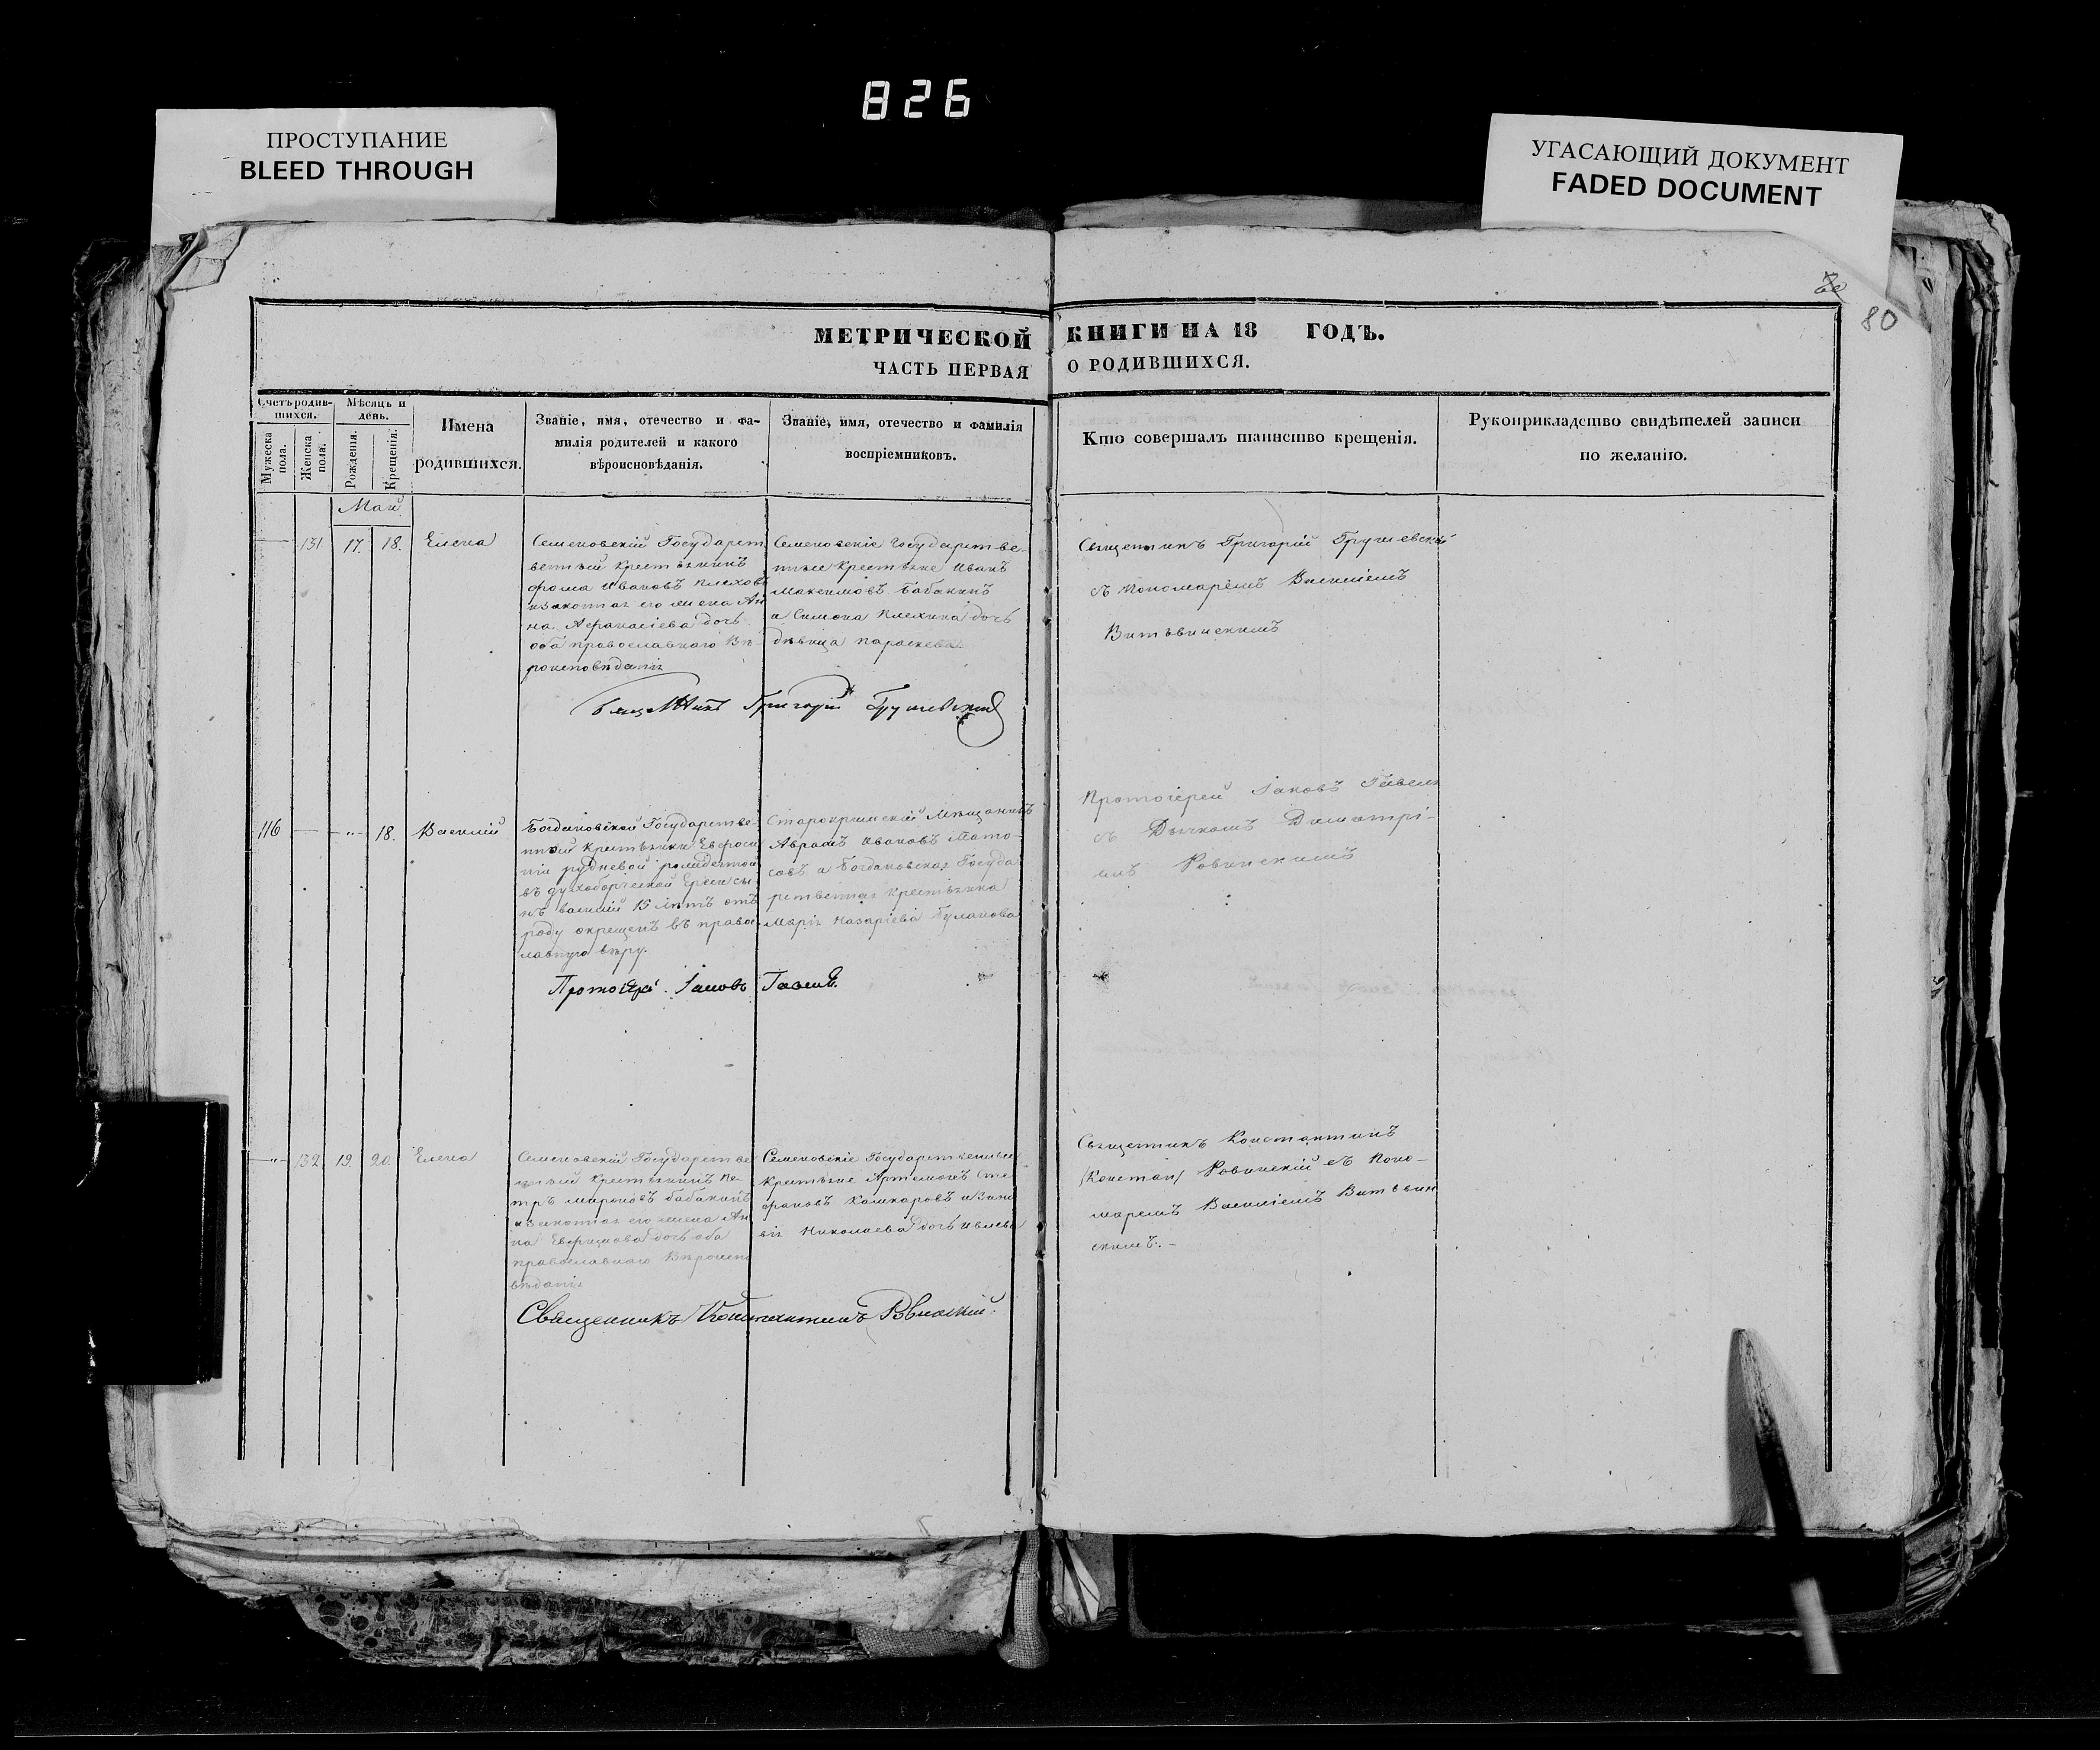 826
ПРОСТУПАНИЕ
BLEED THROUGH
УГАСАЮЩИЙ ДОКУМЕНТ
FADED DOCUMENT
80
МЕТРИЧЕСКОЙ КНИГИ НА 18 ГОДЪ.
ЧАСТЬ ПЕРВАЯ О РОДИВШИХСЯ.
Счетъ родив-
шихся.
Мужеска
пола.
Женска
пола.
Мѣсяцъ и
день.
Рожденія.
Крещенія.
Имена
родившихся.
Званіе, имя, отечество и фа-
милія родителей и какого
вѣроисповѣданія.
Званіе, имя, отечество и фамилія
воспріемниковъ.
Кто совершалъ таинство крещенія.
Рукоприкладство свидѣтелей записи
по желанію.
Маій
131 17. 18. Елена
Семеновскій Государст
венный крестьянинъ
Фома Ивановъ Плехов
и законная его жена Ан
на Афанасіева дочь
оба православнаго Вѣ
роисповѣданія
Семеновскіе Государстве-
нные крестьяне Иванъ
Максимовъ Бабакинъ
и Симона Плехина дочь
дѣвица Параскева.
Священникъ Григорій Грушевскій
съ пономаремъ Василіемъ
Витвинскимъ
Священникъ Григорій Грушевскій
116 18. Василій
Богдановской Государстве-
нной крестьянки Евфроси
ніи Рудневой рожденной
въ духоборческой Ереси сы-
нъ Василій 15 лѣтъ отъ
роду окрещенъ въ правос
лавную вѣру.
Старокрымскій Мѣщанинъ
Аврамъ Ивановъ
и Богдановская Госуда
рственная крестьянка
Марія Назаріева Буланова
Протоіерей Іаковъ Гавел
съ Дьячкомъ Димитрі-
емъ Ровинскимъ
Протоіерей Іаковъ
132 19. 20. Елена
Семеновскій Государстве
нный крестьянинъ Пе-
тръ Мироновъ Бабакинъ
и законная его жена Ан
на Евфимова дочь оба
православнаго Вѣроиспо
вѣданія
Семеновскіе Государственные
крестьяне Артемонъ Сте
фановъ Кашкаровъ и Зино
вія Николаева дочь
Священникъ Константинъ
/Констан/ Ровинскій съ Поно-
маремъ Василіемъ Витвин
скимъ.-
Священникъ Константинъ Ровинскій.